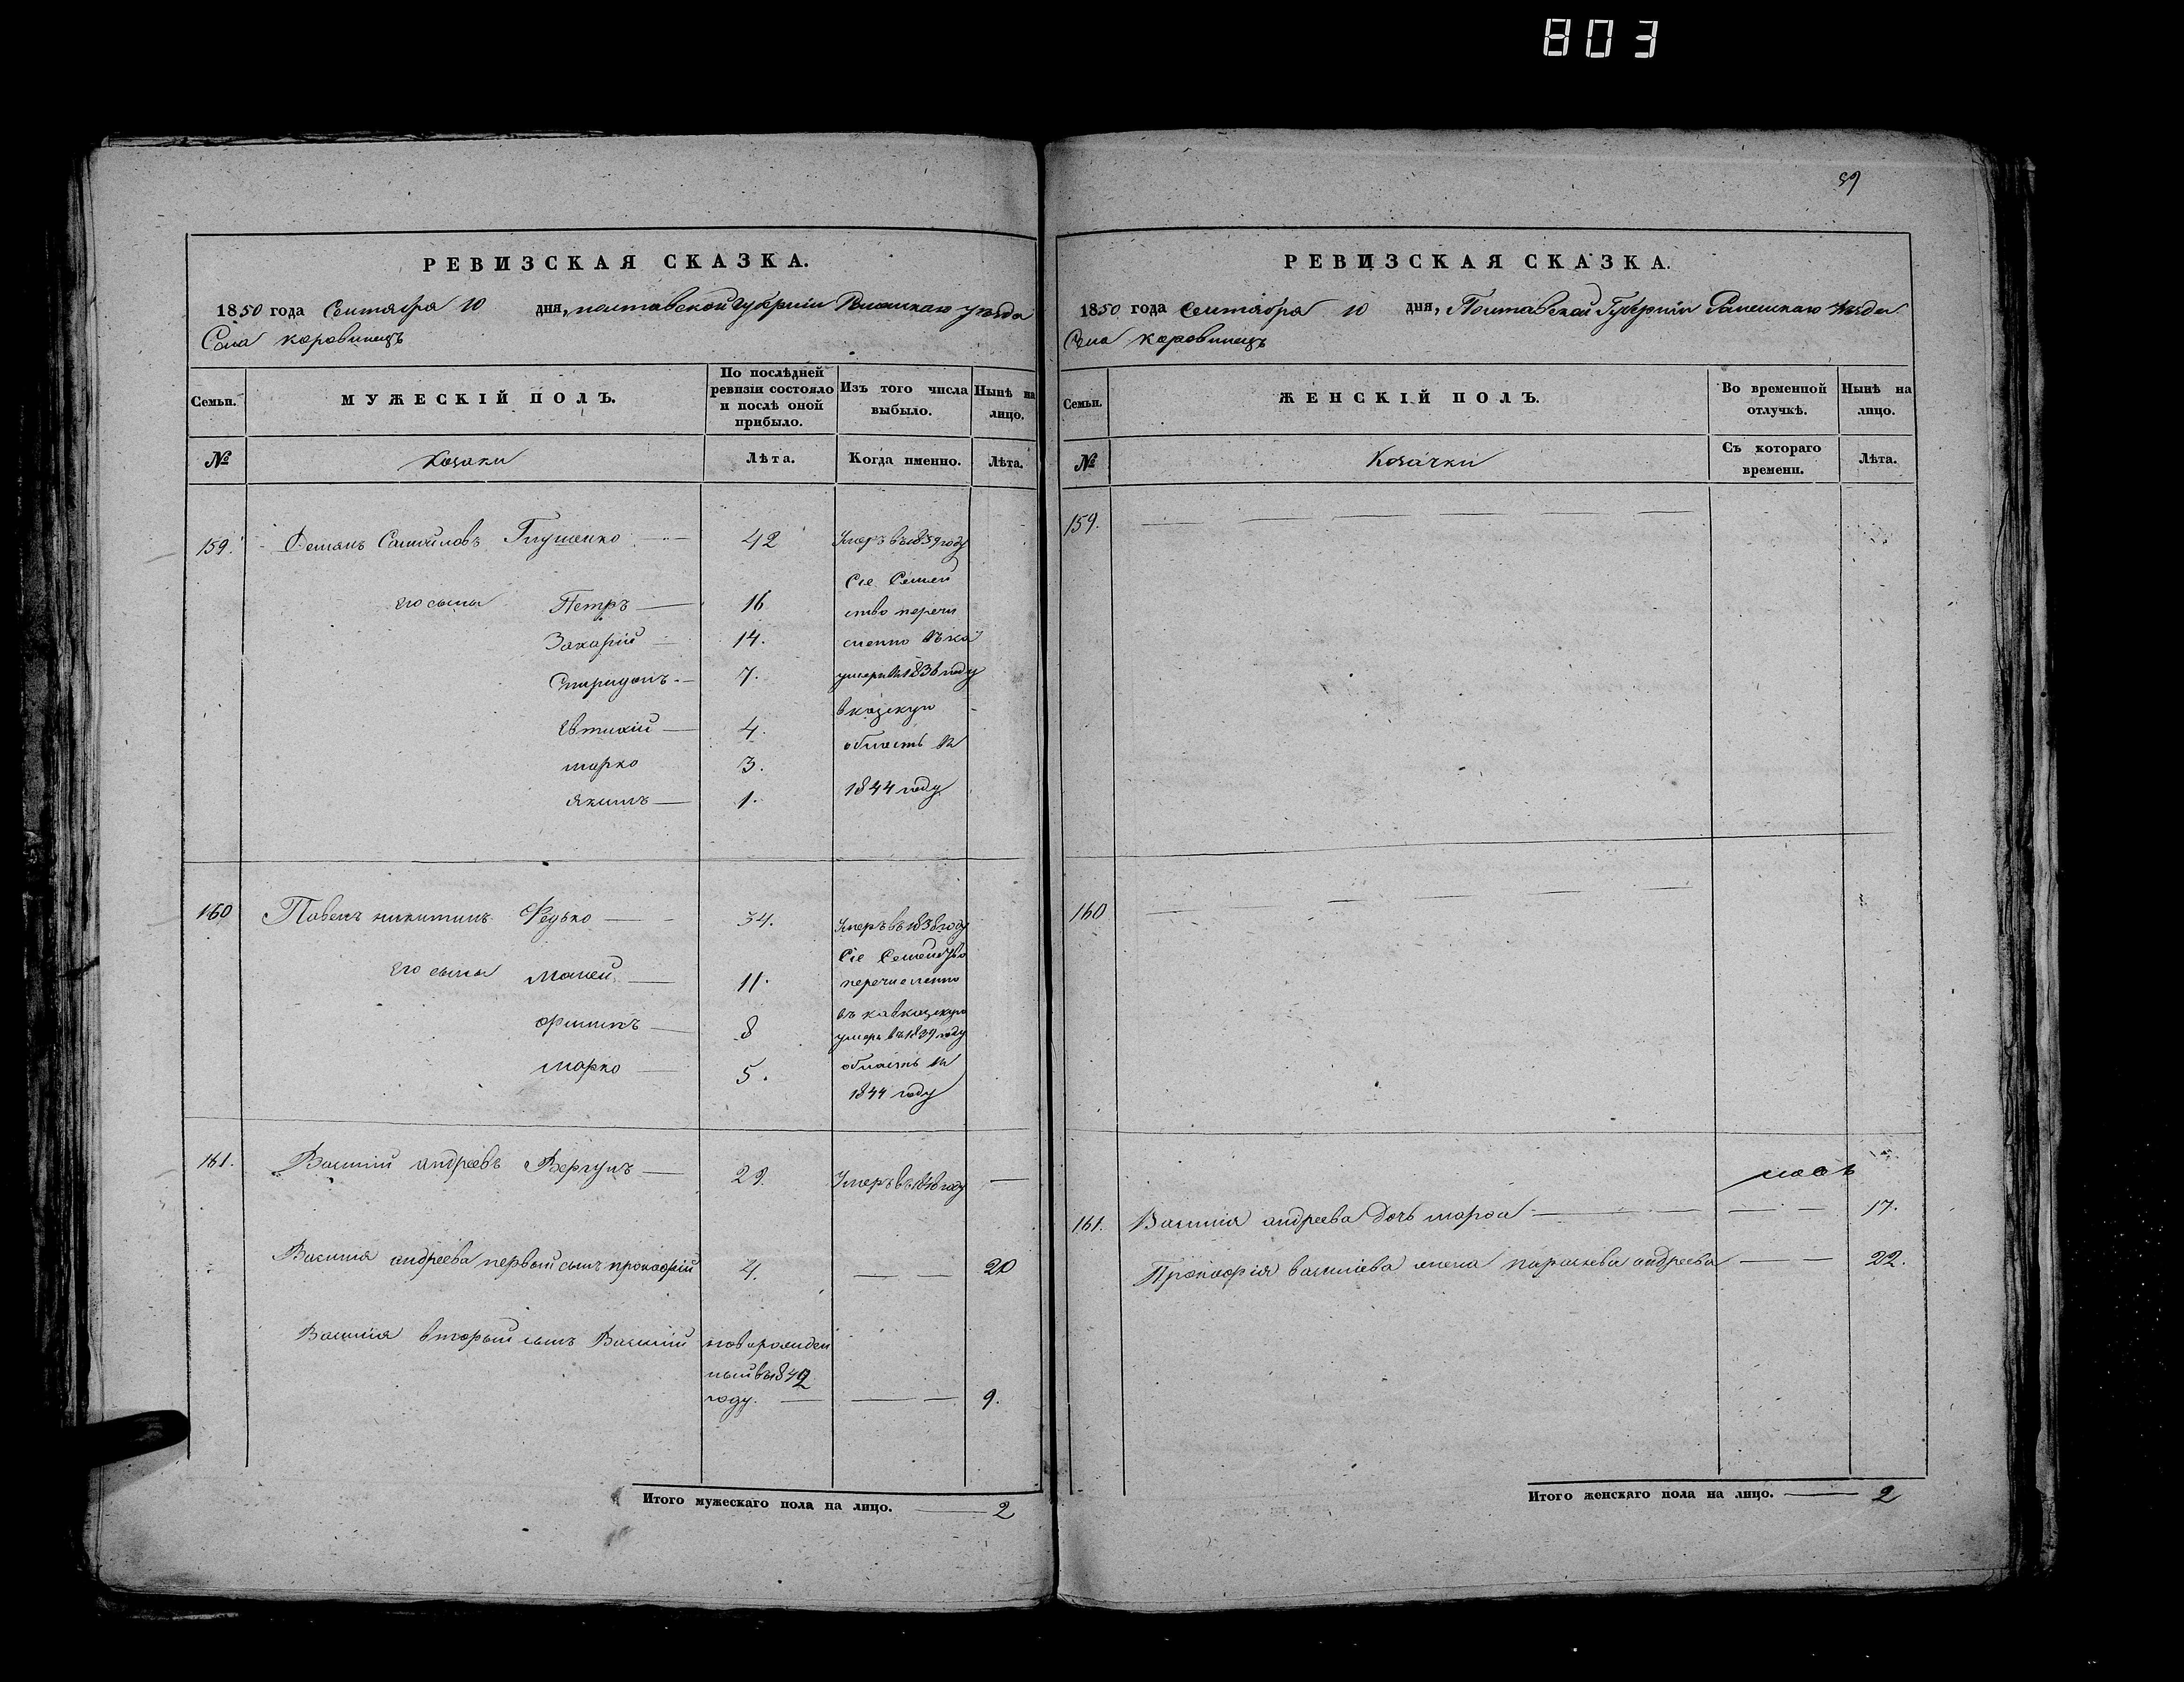 803
59
РЕВИЗСКАЯ СКАЗКА.
1850 года Сентября 10 дня, полтавской губерніи Роменскаго уѣзда
Села коровинецъ
Семьи.
МУЖЕСКІЙ ПОЛЪ.
По послѣдней ревизіи состояло и послѣ оной прибыло.
Изъ того числа выбыло.
Нынѣ на лицо.
№
Козаки
Лѣта.
Когда именно.
Лѣта.
159. Демянъ Самойловъ Глущенко 42 Умеръ въ 1839 году
Сіе Семей
его сыны Петръ 16 ство перечи
Захарій 14. сленно въ ка
Спиридонъ 7. умеръ въ 1836 году
вкаzскую
Евтихій 4. область въ
марко 3.
якимъ 1. 1844 году
160 Павелъ никитинъ Федько 34. Умеръ въ 1838 году
Сіе Семейство
его сыны Мокей 11. перечисленно
въ кавказскую
8 умеръ въ 1839 году
марко 5. область въ
1844 году
161. Василій андреевъ Вергунъ 29. Умеръ въ году
Василія андреева первый сынъ прокофій 4. 20
Василія вторый сынъ Василій новорожден
ный въ 1842
году. 9.
Итого мужескаго пола на лицо. 2
РЕВИЗСКАЯ СКАЗКА.
1850 года Сентября 10 дня, Полтавской Губерніи Роменскаго уѣзда
Села коровинецъ
Семьи.
ЖЕНСКІЙ ПОЛЪ.
Во временной отлучкѣ.
Нынѣ на лицо.
№
Козачки
Съ котораго времени.
Лѣта.
159.
160
161. Василія андреева дочь марфа 17.
Прокофія василіева жена параскева андреева 22.
Итого женскаго пола на лицо. 2